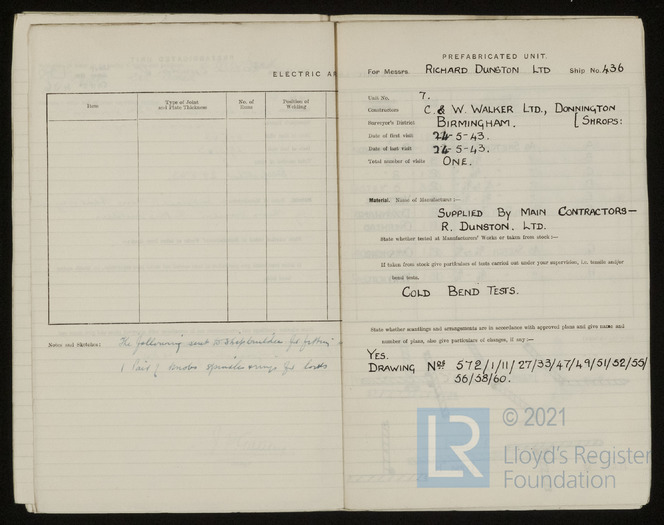 ELECTRIC AR
Item
Type of Joint
and Plate Thickness
No. of
Runs
Position of
Welding
Notes and Sketches:
The following sent to Shipbuilder for fitting:-
1 Pair of knobs spindle & rings for locks
PREFABRICATED UNIT.
For Messrs RICHARD DUNSTON LTD Ship No. 436
Unit No. 7.
Contractors C. & W. WALKER LTD., DONNINGTON
Surveyor's District BIRMINGHAM. [SHROPS:
Date of first visit 24-5-43.
Date of last visit 24-5-43.
Total number of visits ONE.
Material. Name of Manufacturer:—
SUPPLIED BY MAIN CONTRACTORS—
R. DUNSTON. LTD.
State whether tested at Manufacturers' Works or taken from stock:—
If taken from stock give particulars of tests carried out under your supervision, i.e. tensile and/or
bend tests.
COLD BEND TESTS.
State whether scantlings and arrangements are in accordance with approved plans and give name and
number of plans, also give particulars of changes, if any:—
YES.
DRAWING Nos 572/1/11/27/33/47/49/51/52/55/
56/58/60.
LR
© 2021
Lloyd's Register
Foundation